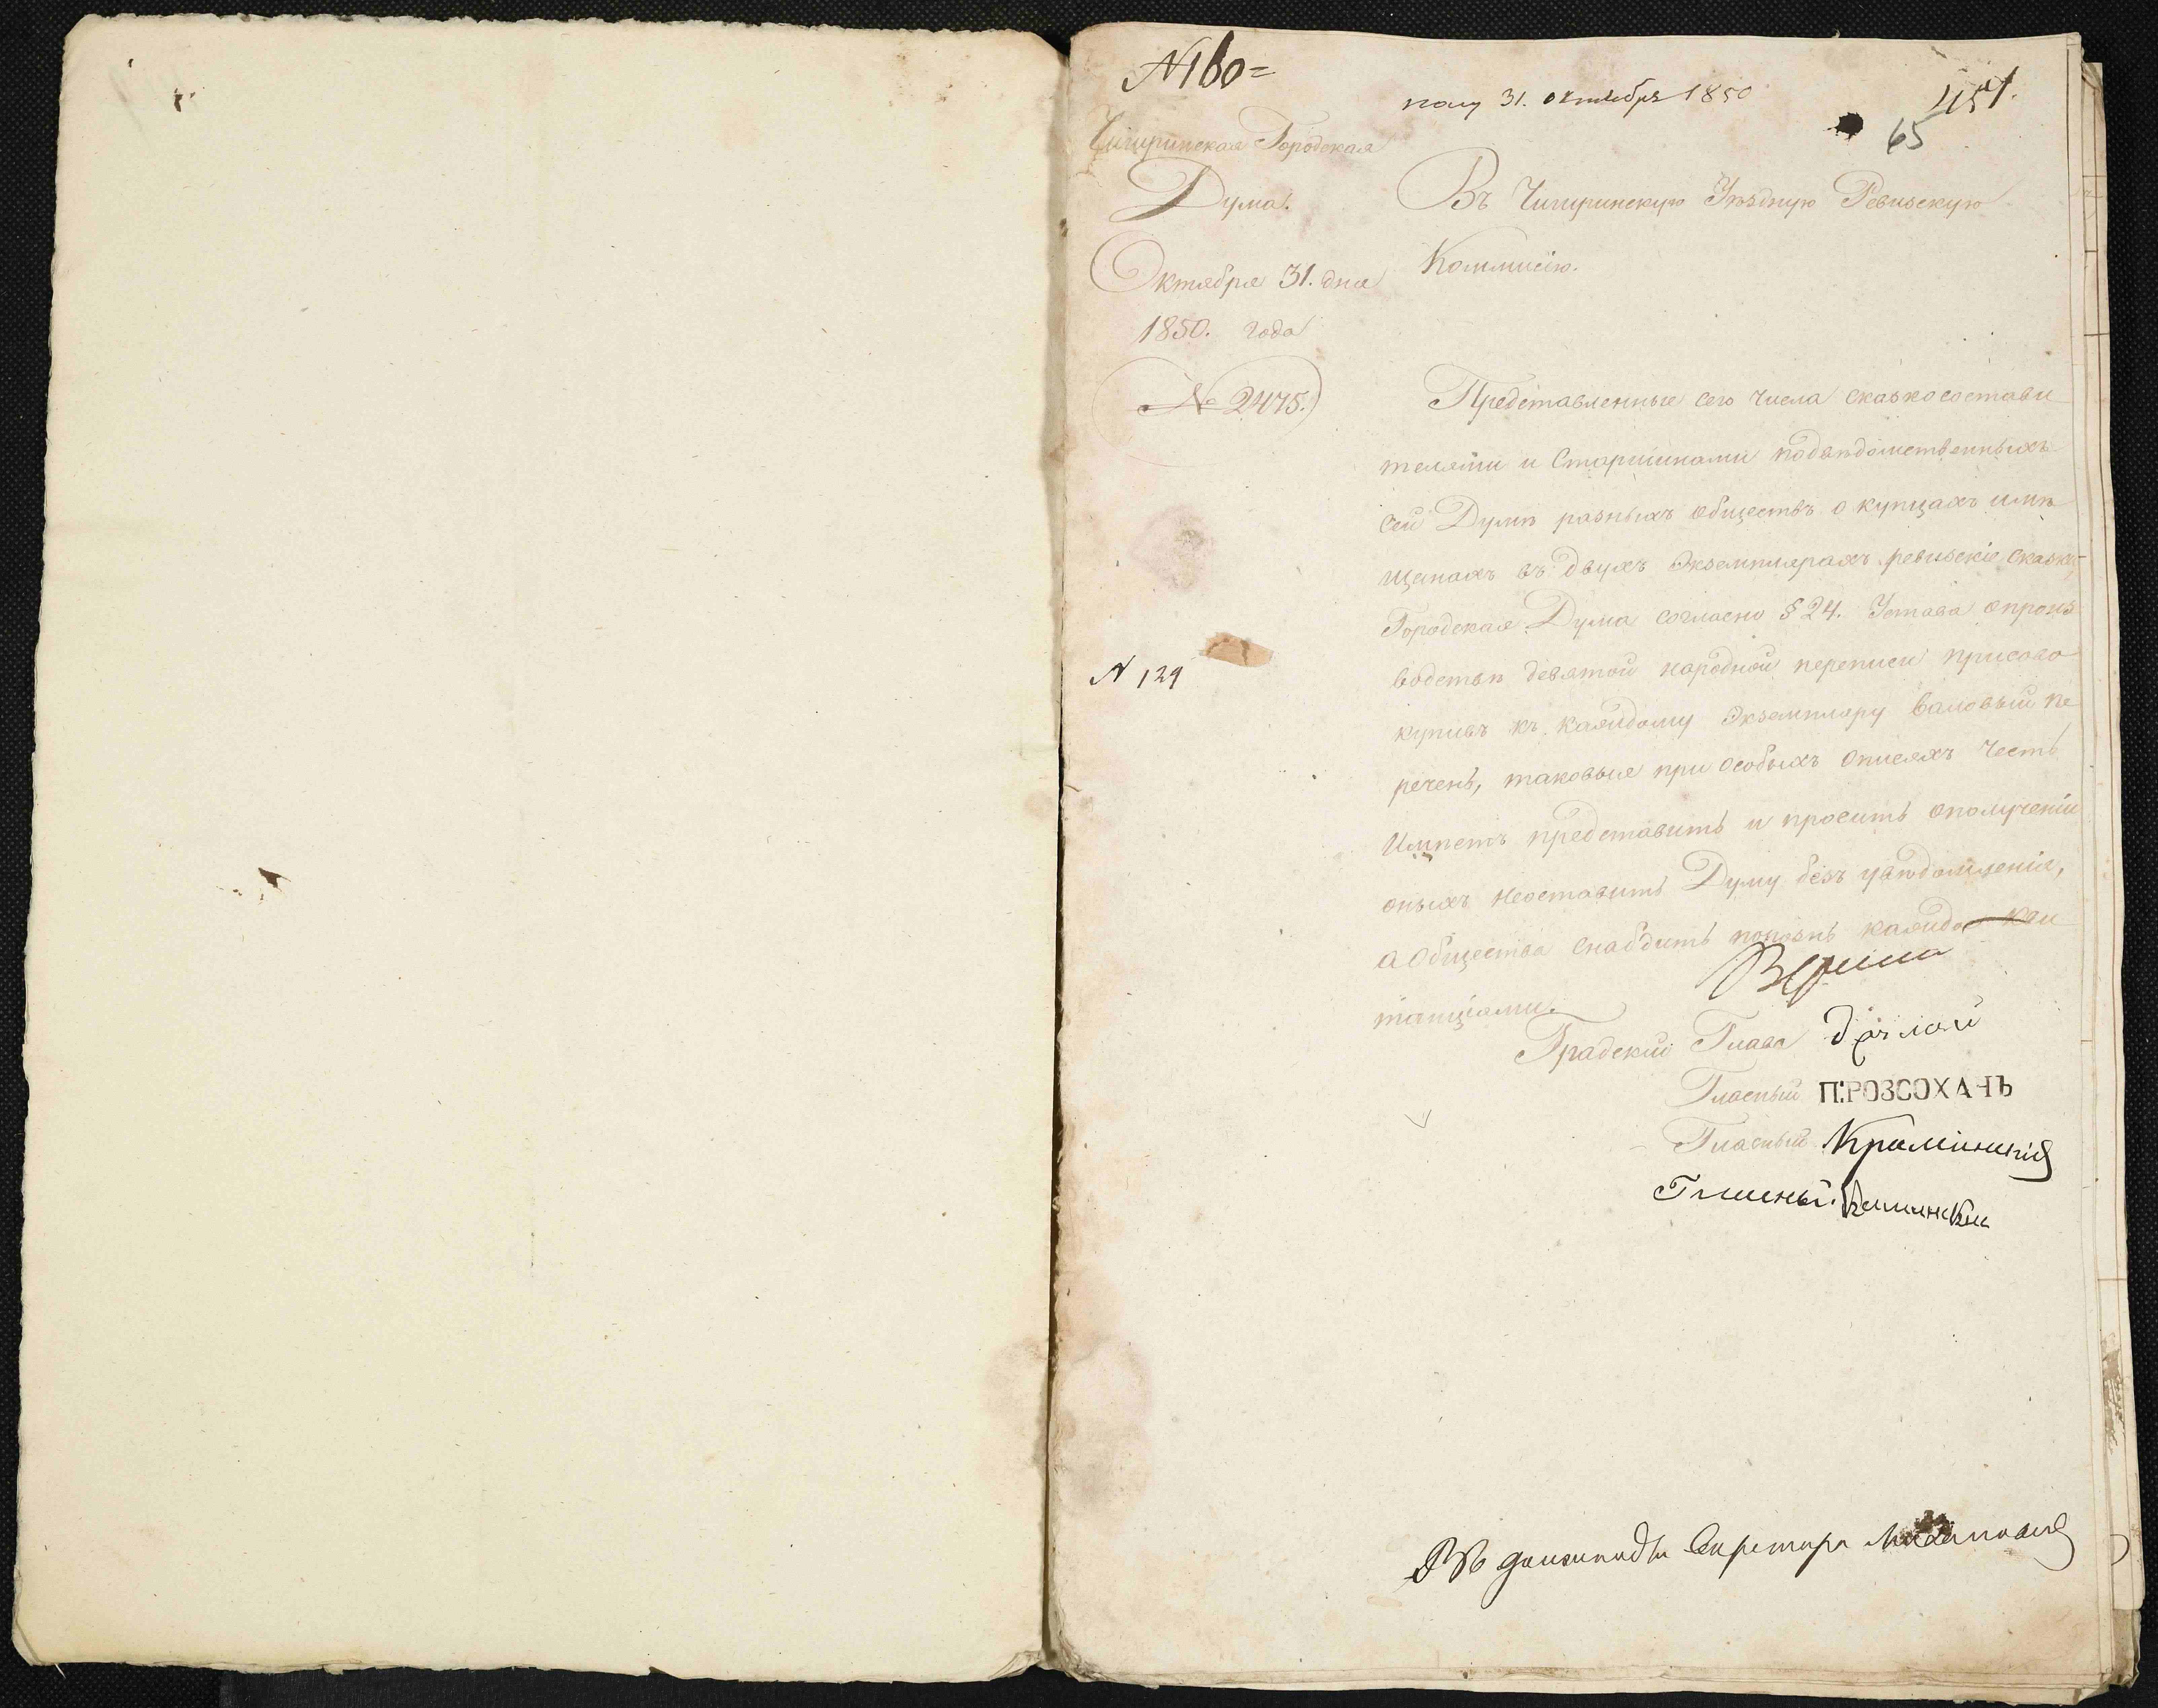 N 160=
пол 31. октября 1850
451.
65
Чигиринская Городская
Дума.
Октября 31. дня
1850. года
№ 2475.
N 129
Въ Чигиринскую Уѣздную Ревизскую
Коммисію.
Представленные сего числа сказкосостави
телями и Старшинами подвѣдомственныхъ
сей Думѣ разныхъ обществъ о купцахъ имѣ
щанахъ въ двухъ Экземплярахъ ревизскіе сказки,
Городская Дума согласно § 24. Устава опроиз
водствѣ девятой народной переписи присово
купивъ къ каждому Экземпляру валовый пе
речень, таковыя при особыхъ описяхъ честь
имѣетъ представить и просить ополученіи
оныхъ неоставить Думу безъ увѣдомленія,
а Общества снабдить каждое кви
танціями.
Градскій Глава
Гласный П:РОЗСОХАЧЬ
Гласный
Гласный
Въ должности Секретаря